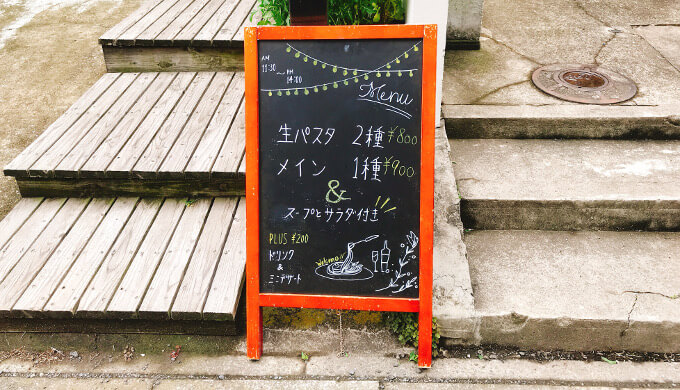 AM
11:30
〜 PM
14:00
Menu
生パスタ 2種 ¥800
メイン 1種 ¥900
&
スープとサラダ付き
PLUS ¥200
ドリンク
&
ミニデザート
Welcome